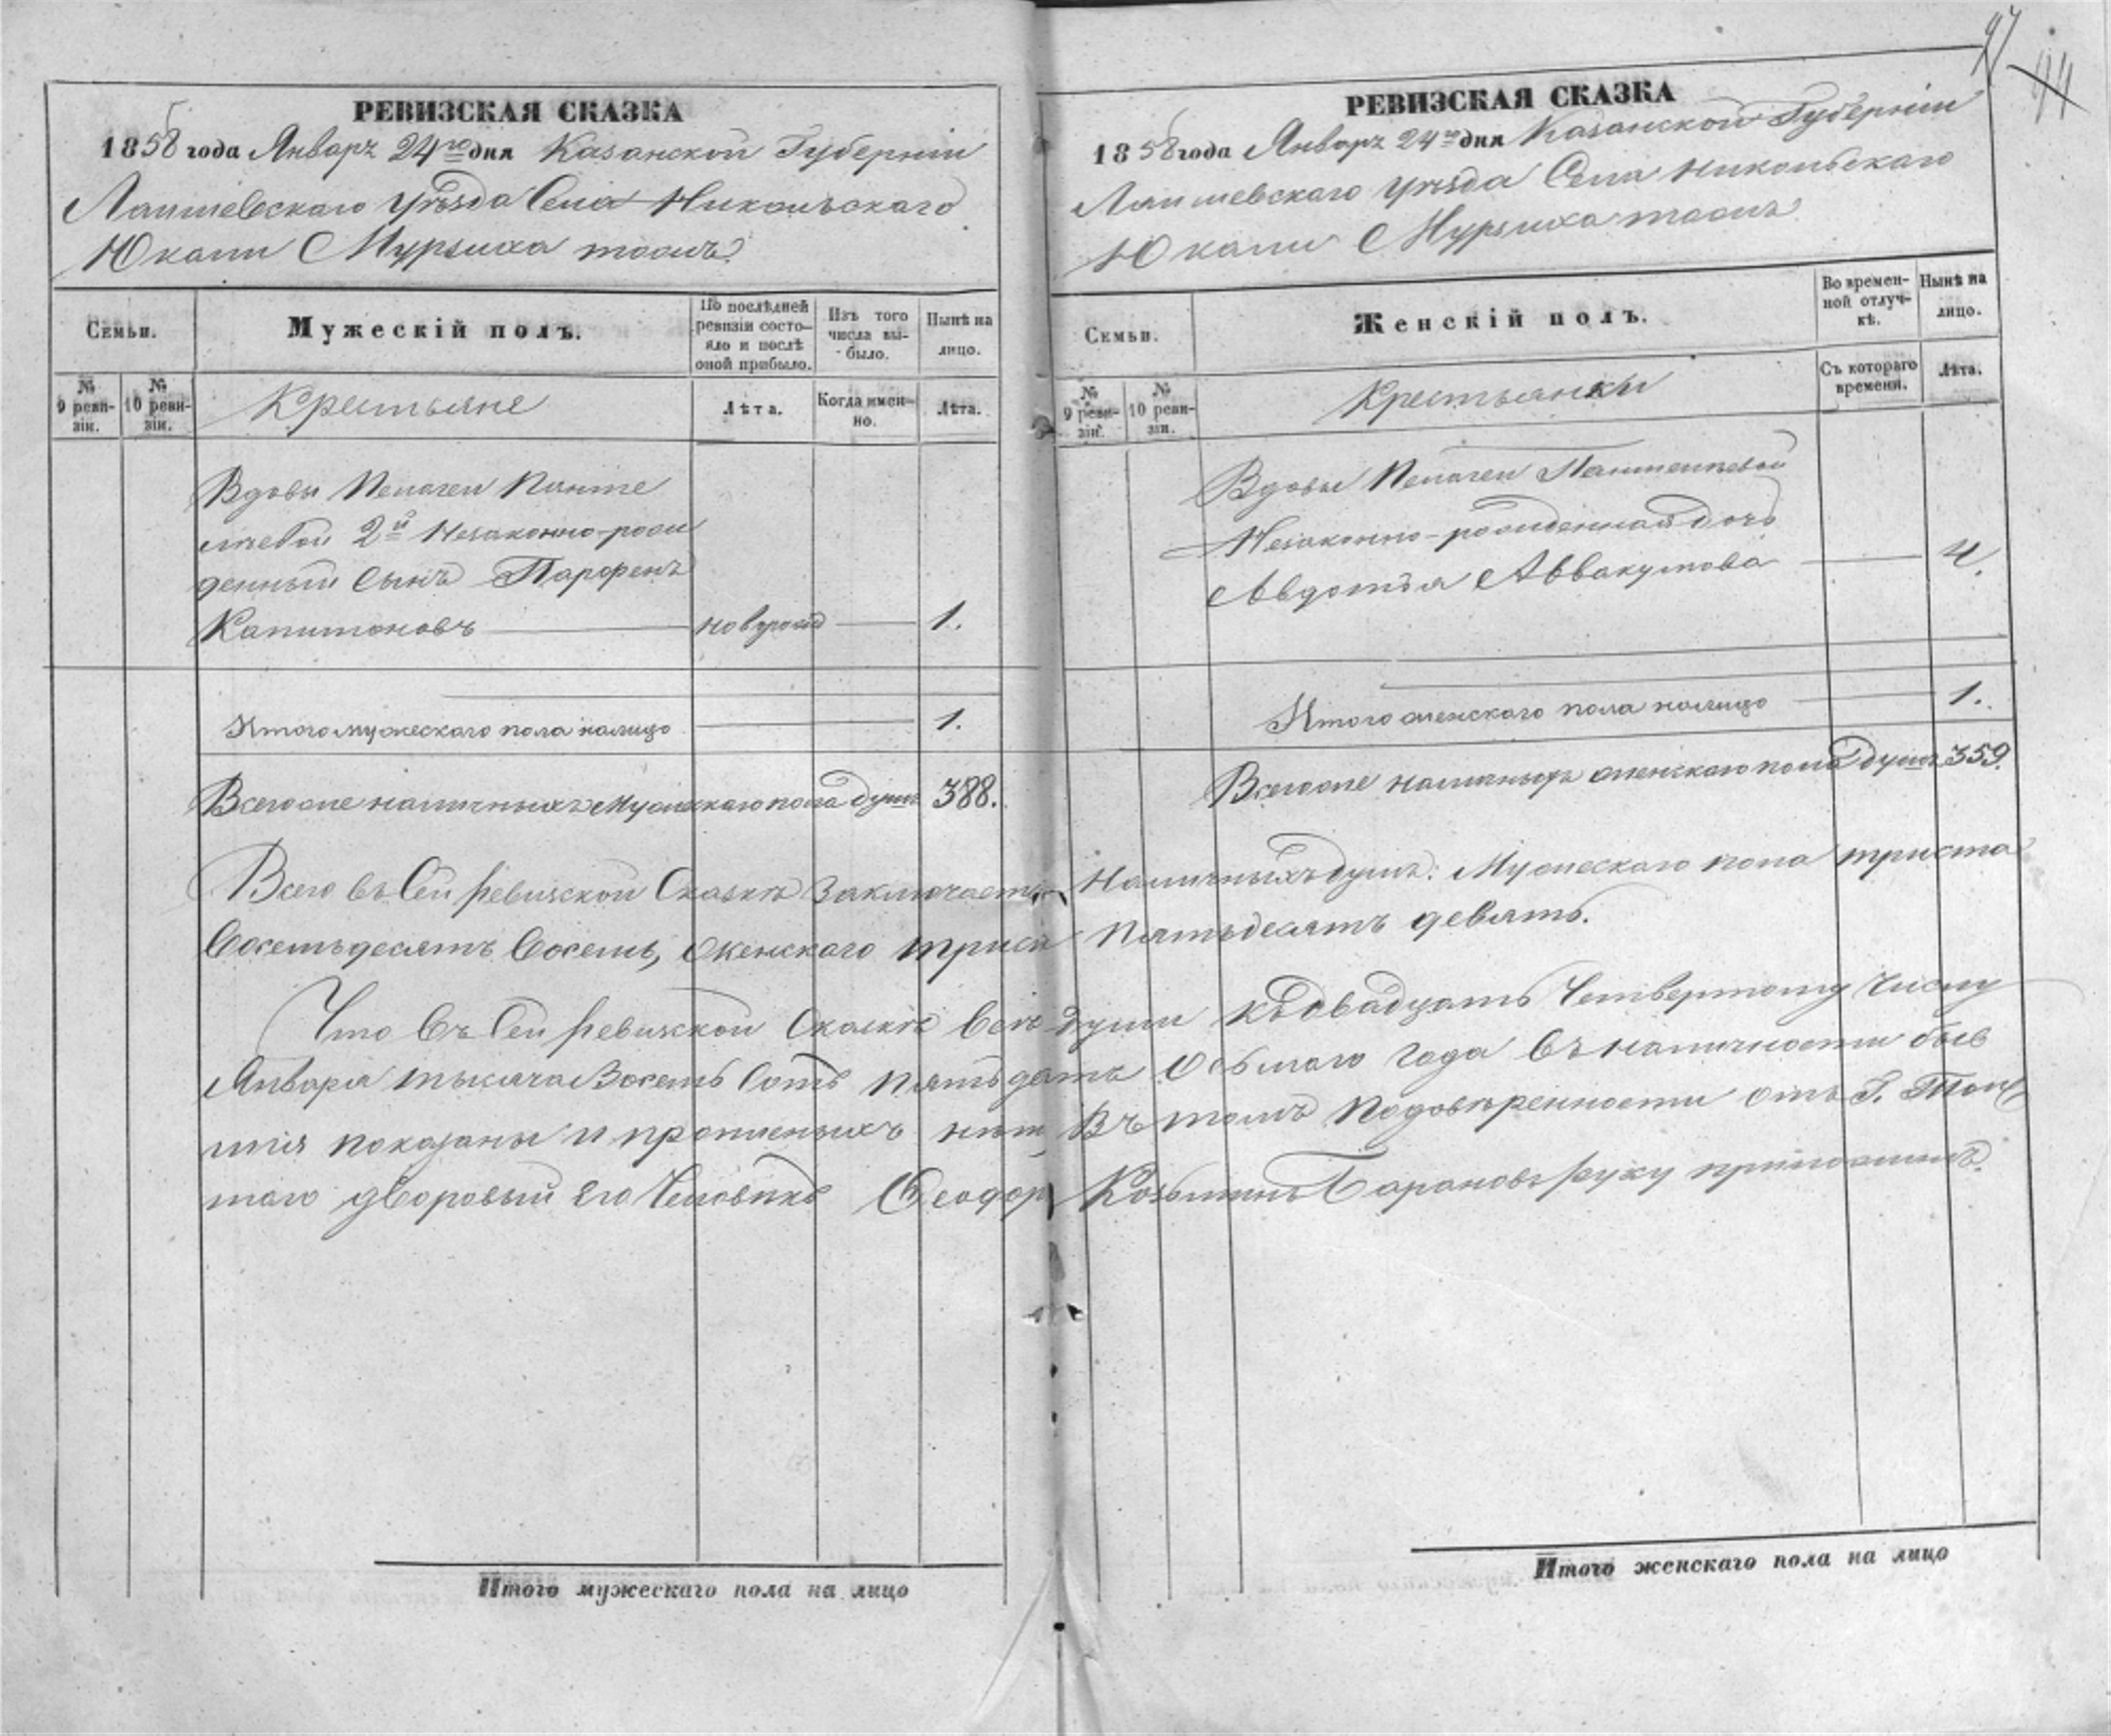 97
44
РЕВИЗСКАЯ СКАЗКА
1858 года Январь 24го дня Казанской Губерніи
Лаишевскаго Уѣзда Села Никольскаго
Юкали Мурзиха тожъ
Семьи.
Мужескій полъ.
По послѣдней ревизіи состо-яло и послѣ оной прибыло.
Изъ того числа вы-было.
Нынѣ на лицо.
№ 9 реви-зіи.
№ 10 реви-зіи.
Крестьяне
Лѣта.
Когда имен-но.
Лѣта.
Вдовы Пелагеи Панте
лѣевой 2й Незаконно-рож
денный Сынъ Парфенъ
Капитоновъ новурожд 1.
Итого мужескаго пола налицо 1.
Всего же наличныхъ Мужескаго пола душъ 388.
РЕВИЗСКАЯ СКАЗКА
1858 года Январь 24го дня Казанской Губерніи
Лаишевскаго Уѣзда Села Никольскаго
Юкали Мурзиха тожъ
Семьи.
Женскій полъ.
Во времен-ной отлуч-кѣ.
Нынѣ на лицо.
№ 9 реви-зіи.
№ 10 реви-зіи.
Крестьянки
Съ котораго времени.
Лѣта.
Вдовы Пелагеи Пантелѣевой
Незаконно-рожденная дочь
Авдотья Аввакумова 4.
Итого женскаго пола налицо 1.
Всего же наличныхъ женскаго пола душъ 359.
Всего въ Сей Ревизской Сказкѣ Заключается Наличныхъ душъ: Мужескаго пола триста
Восемьдесятъ Восемь, Женскаго триста Пятьдесятъ девять.
Что въ Сей Ревизской Сказкѣ Всѣ души къ двадцать Четвертому Числу
Января тысяча Восемь Сотъ пятьдесятъ Осьмаго Года Въ наличности быв
шія показаны и прописныхъ нѣтъ Въ томъ Подовѣренности отъ Г. Толс
таго дворовый Его Человѣкъ Феодоръ Козьминъ Барановъ руку приложилъ.
Итого мужескаго пола на лицо
Итого женскаго пола на лицо